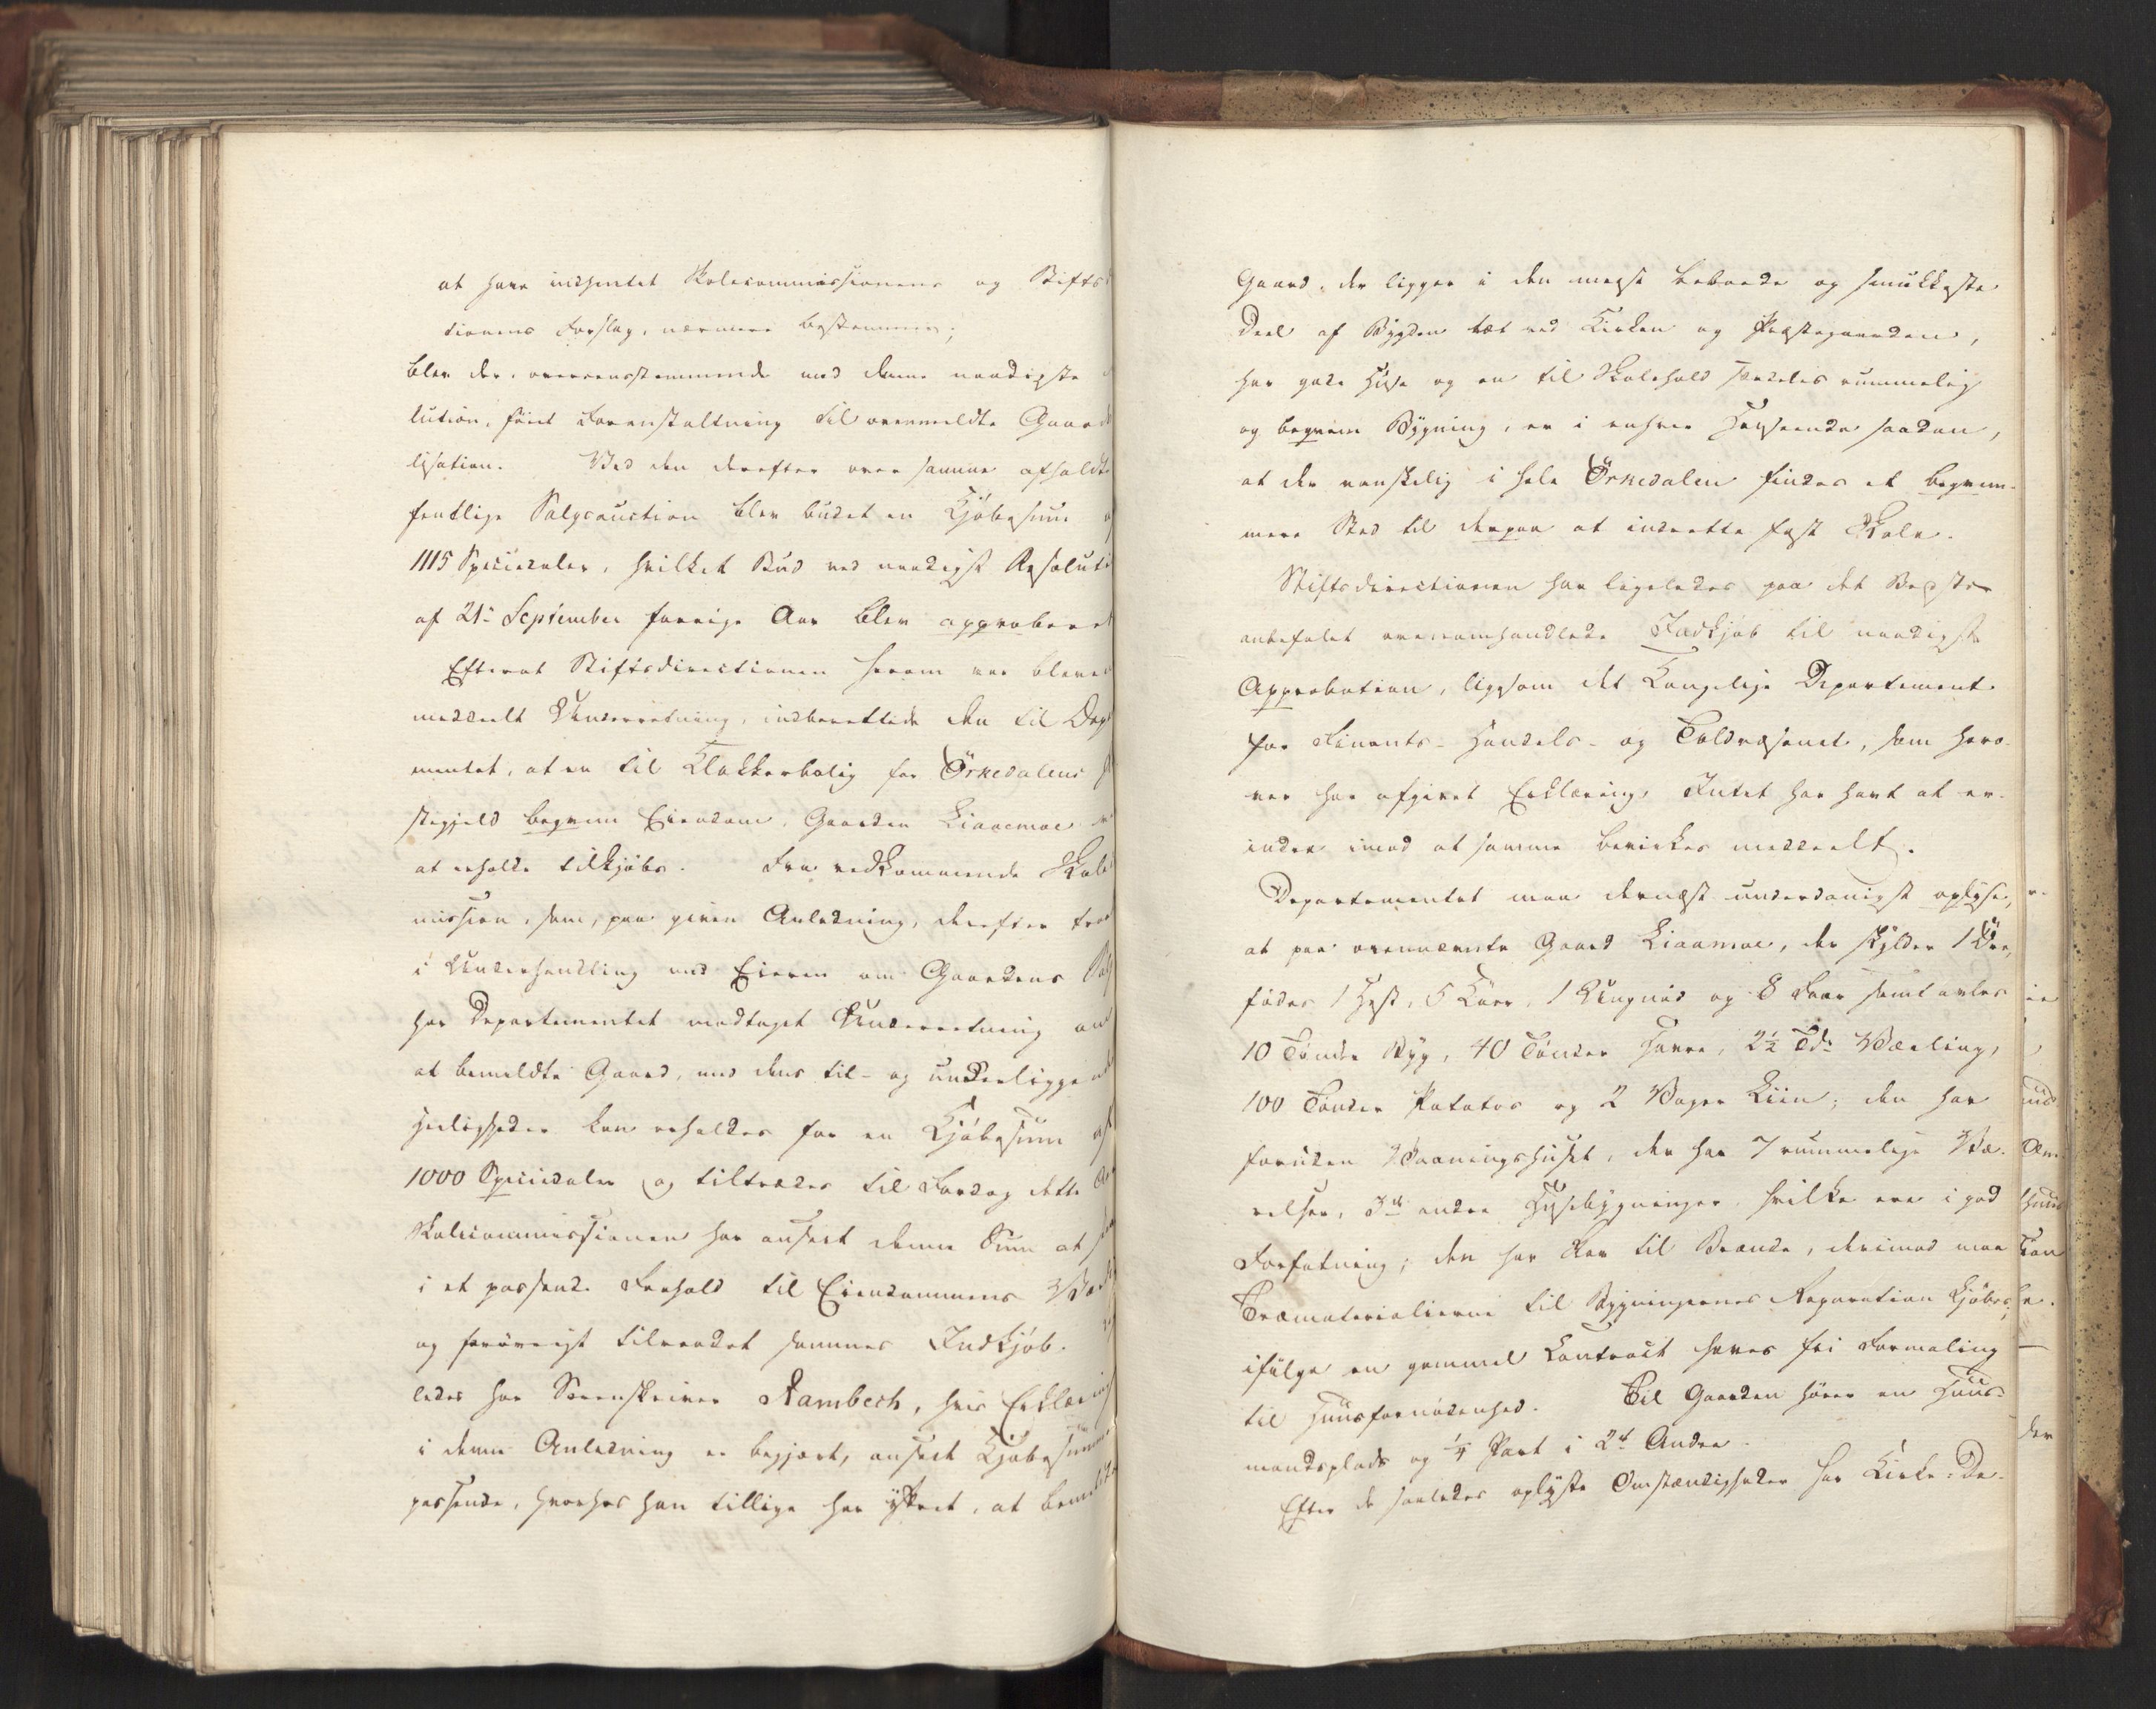 at have indhentet Skolecommissionens og Stifts
tionens Forslag, nærmere bestemme;
blev der, overeensstemmende med denne naadigste
lution, føiet Foranstaltning til ovenmeldte Gaar
lisation. Ved den derefter over samme afholdte
fentlige Salgsauction blev budet en Kjøbesum
1115 Speciedaler, hvilket Bud ved naadigst Resoluti
af 21de September forrige Aar blev approberet
Efterat Stiftsdirectionen herom var bleven
meddeelt Underretning, indberettede den til Dep
mentet, at en til Klokkerbolig for Örkedalens
stegjeld beqvem Eiendom, Gaarden Liaaemoe
at erholde tilkjøbs. Fra vedkommende Skole
mission, som, paa given Anledning, derefter traa
i Underhandling med Eieren om Gaardens Salg
har Departementet modtaget Underretning om
at bemeldte Gaard, med dens til- og underliggend
Herligheder kan erholdes for en Kjøbesum af
1000 Speciedaler og tiltrædes til Fardag dette Aar
Skolecommissionen har anseet denne Sum at
i et passende Forhold til Eiendommens Værd
og forøvrigt tilraadet sammes Indkjøb.
ledes har Sorenskriver Rambech, hvis Erklæring
i denne Anledning er begjært, anseet Kjøbesummen
passende, hvorhos han tillige har yttret, at bemeldte
Gaard, der ligger i den meest beboede og smukkeste
Deel af Bygden tæt ved Kirken og Præstegaarden,
har gode Huse og en til Skolehold særdeles rummelig
og beqvem Bygning, er i enhver Henseende saadan,
at der vanskelig i hele Örkedalen findes et beqvem-
mere Sted til derpaa at indrette fast Skole.
Stiftsdirectionen har ligeledes paa det Bedste
anbefalet ovenomhandlede Indkjøb til naadigst
Approbation, ligesom det Kongelige Departement
for Finants- Handels- og Toldvæsenet, som hero-
ver har afgivet Erklæring, Intet har havt at er-
indre imod at samme bevirkes meddeelt.
Departementet maa dernæst underdanigst oplyse,
at paa ovennævnte Gaard Liaamoe, der skylder 1 Øre,
fødes 1 Hest, 5 Køer, 1 Ungnød og 8 Faar samt avles
10 Tønder Byg, 40 Tønder Havre, 2½ Tdr Blæling,
100 Tønder Potatos og 2 Voger Liin; den har
foruden Vaaningshuset, der har 7 rummelige Væ-
relser, 3de andre Husebygninger, hvilke ere i god
Forfatning; den har Ret til Brænde, derimod maa
Træmaterialierne til Bygningernes Reparation kjøbes;
ifølge en gammel Contract haves fri Formaling
til Huusfornødenhed. Til Gaarden hører en Huus-
mandsplads og ¼ Part i 2de Andre.
Efter de saaledes oplyste Omstændigheder har Kirke-De-